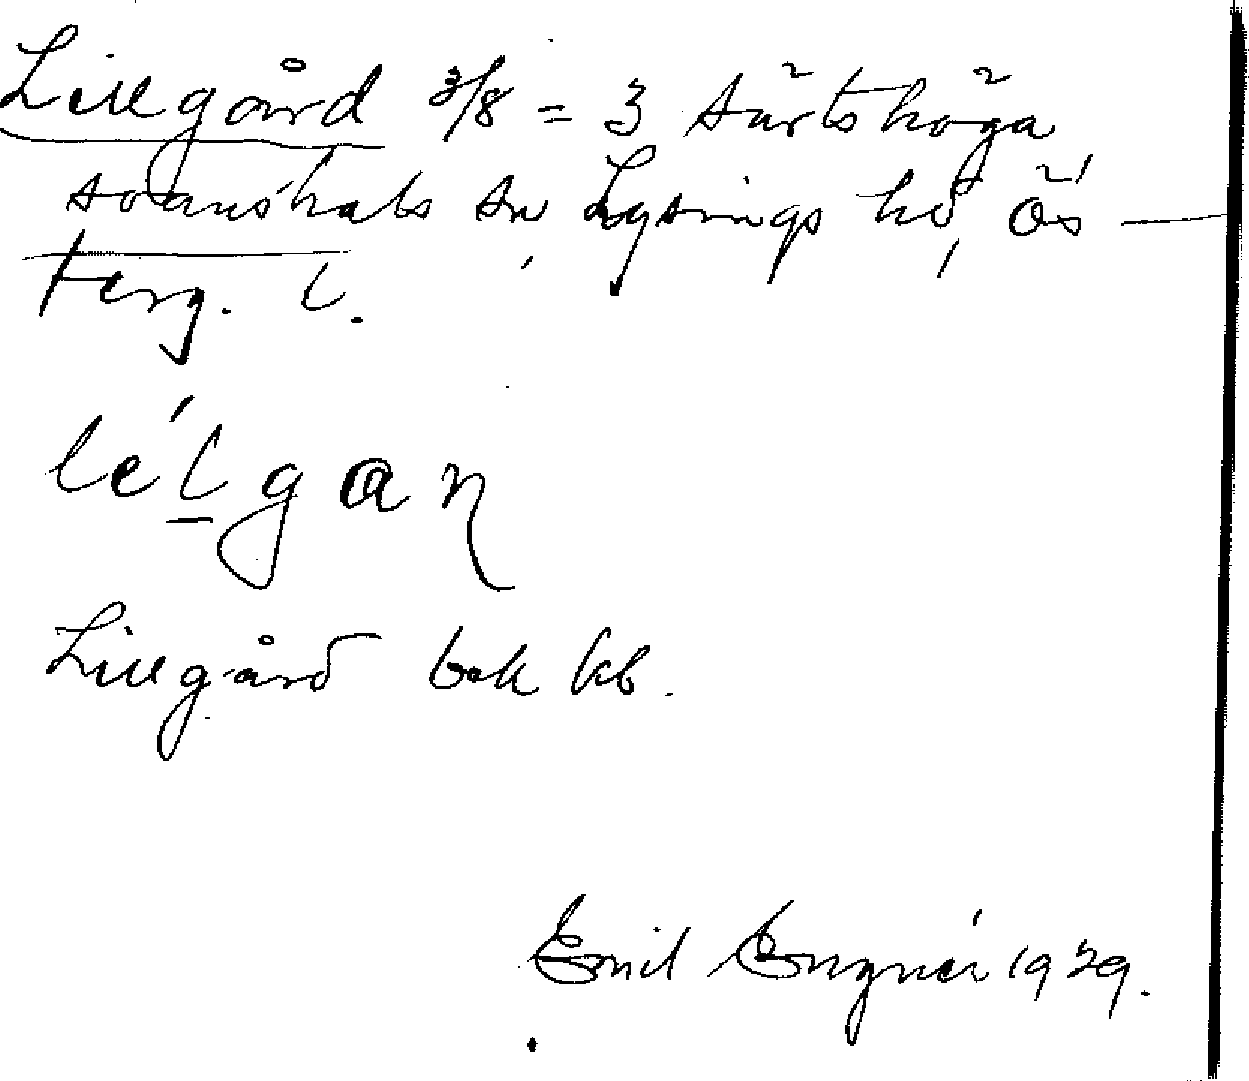 Lillgård 3/8 = 3 Kärtshöga
svanshals sn, Lysings hd, Ös-
terg. l.
lélgaɳ
Lillgård bok kb.
Emil Engnér 1929.